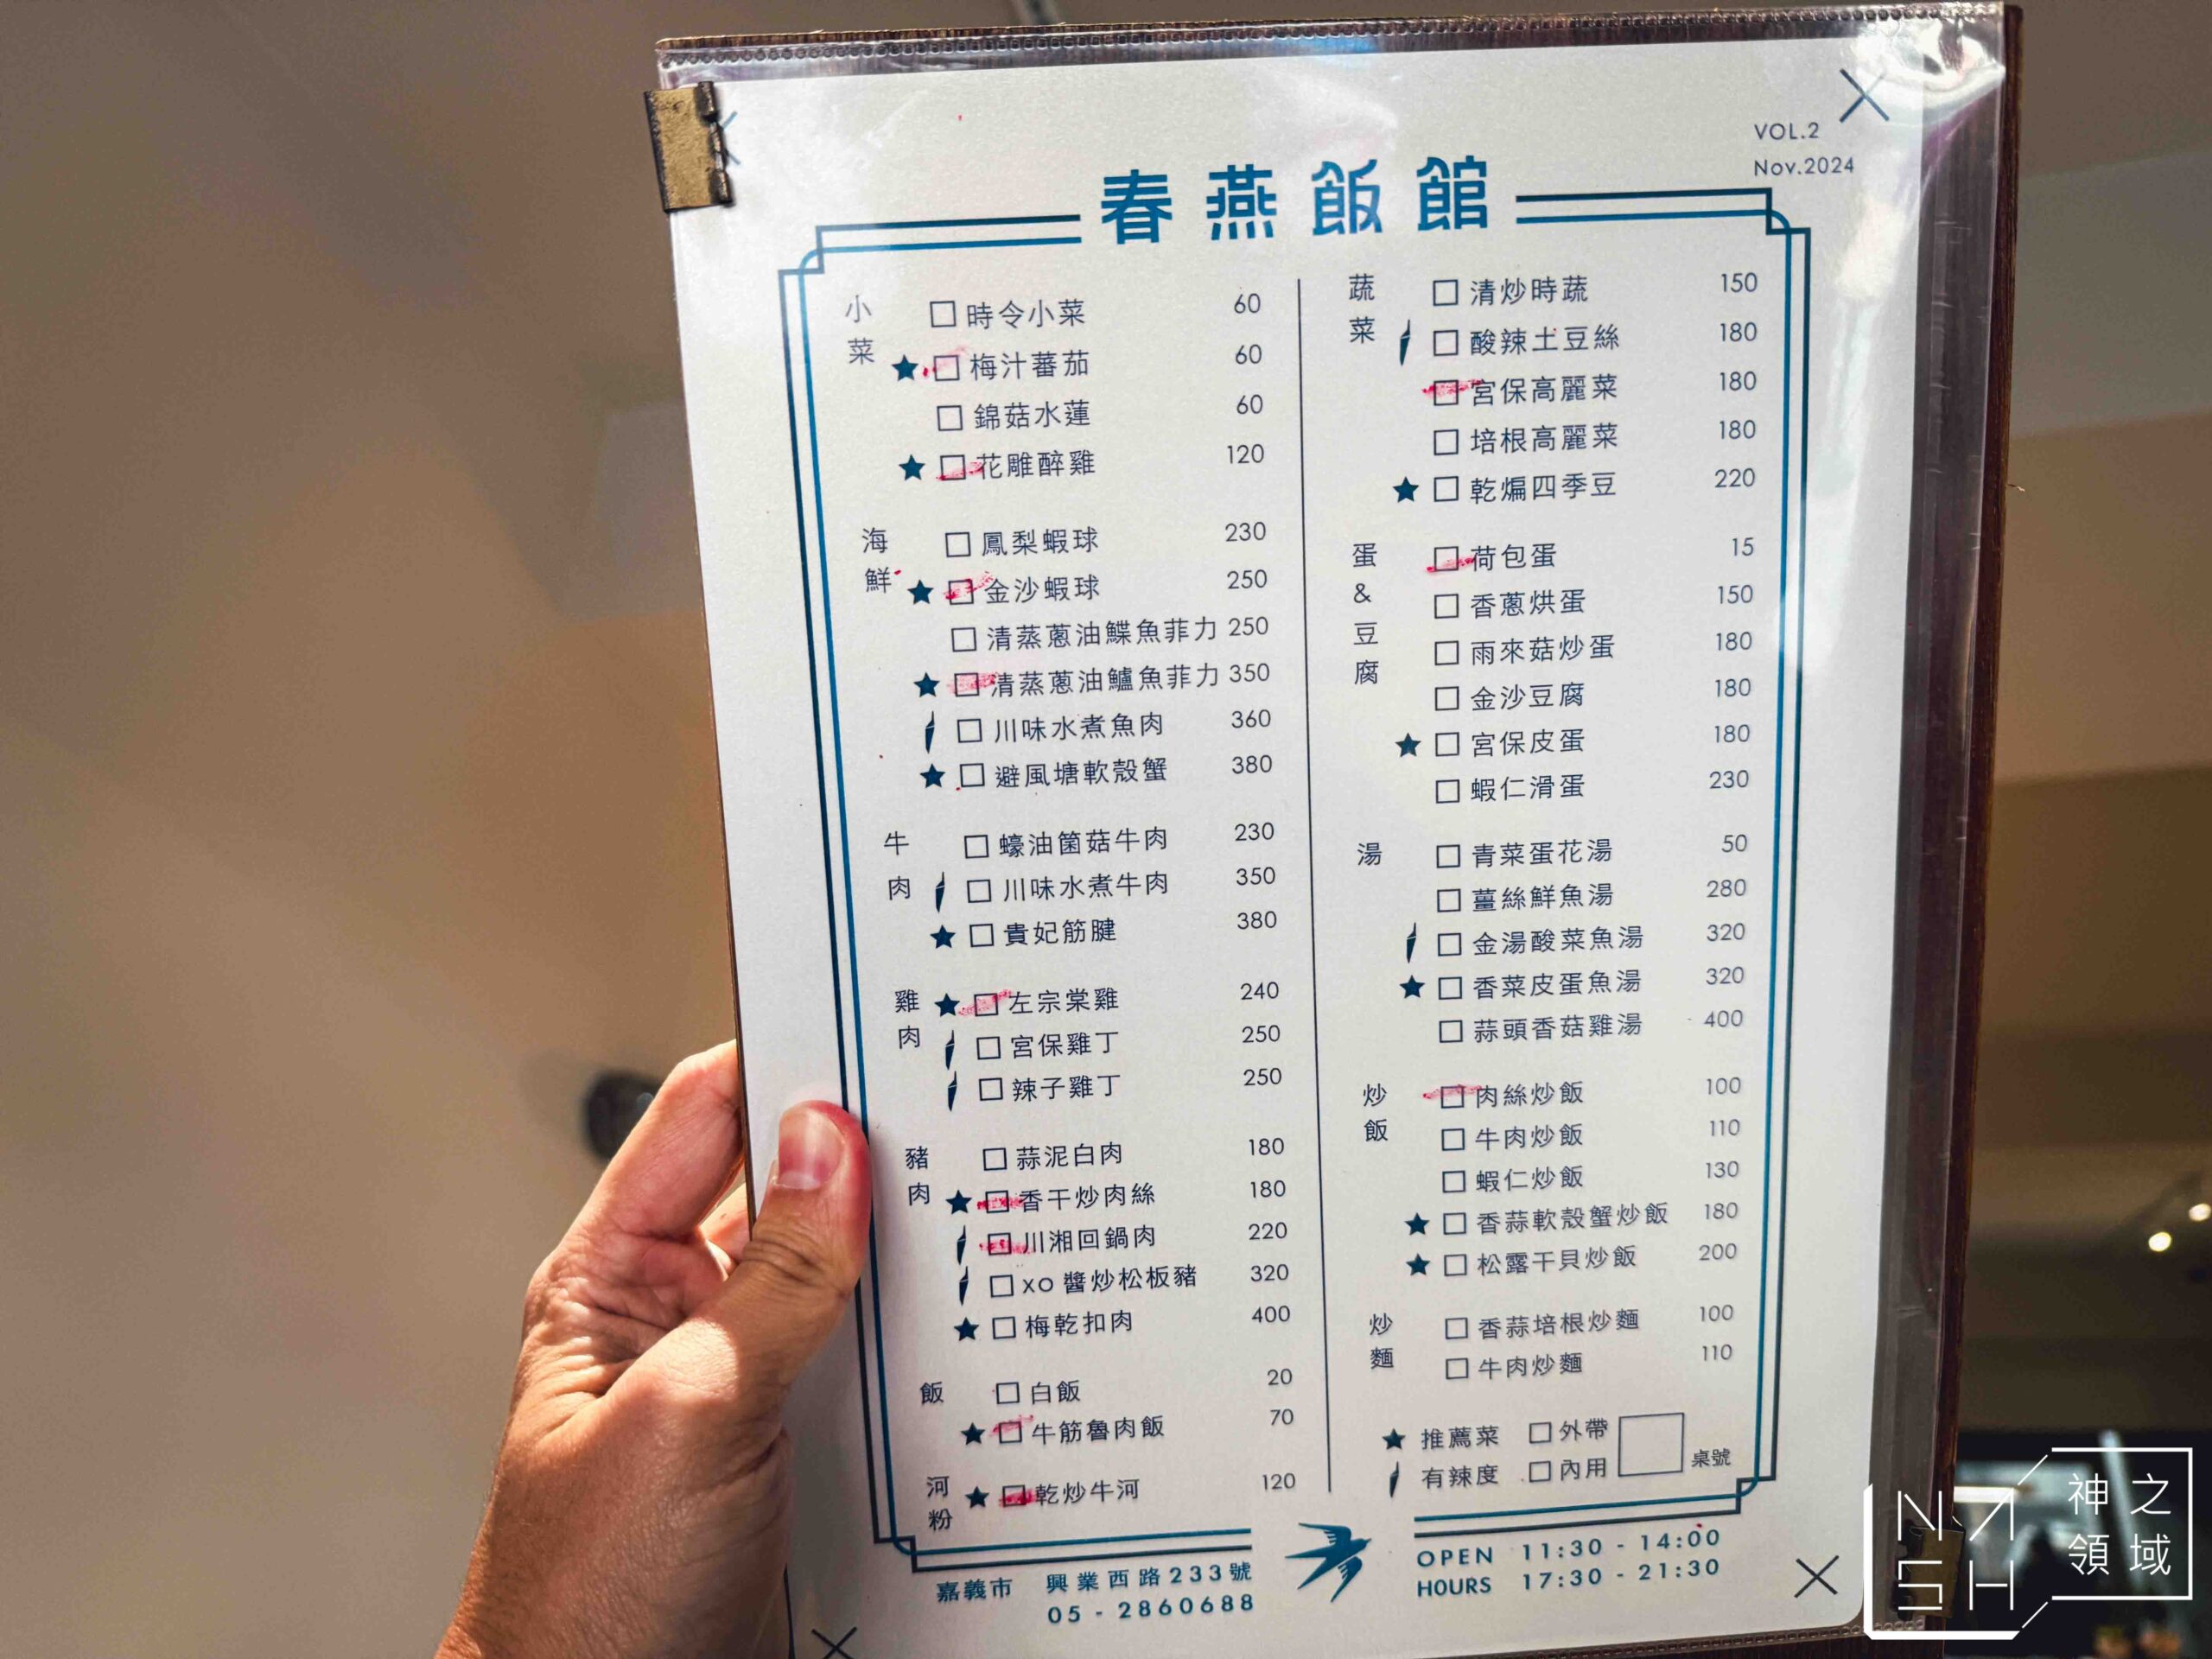 VOL.2
Nov.2024
春燕飯館
小菜
時令小菜 60
★ 梅汁蕃茄 60
錦菇水蓮 60
★ 花雕醉雞 120
海鮮
鳳梨蝦球 230
★ 金沙蝦球 250
清蒸蔥油鰈魚菲力 250
★ 清蒸蔥油鱸魚菲力 350
川味水煮魚肉 360
★ 避風塘軟殼蟹 380
牛肉
蠔油菌菇牛肉 230
川味水煮牛肉 350
★ 貴妃筋腱 380
雞肉
★ 左宗棠雞 240
宮保雞丁 250
辣子雞丁 250
豬肉
蒜泥白肉 180
★ 香干炒肉絲 180
川湘回鍋肉 220
xo 醬炒松板豬 320
★ 梅乾扣肉 400
飯
白飯 20
★ 牛筋魯肉飯 70
河粉
★ 乾炒牛河 120
蔬菜
清炒時蔬 150
酸辣土豆絲 180
宮保高麗菜 180
培根高麗菜 180
★ 乾煸四季豆 220
蛋&豆腐
荷包蛋 15
香蔥烘蛋 150
雨來菇炒蛋 180
金沙豆腐 180
★ 宮保皮蛋 180
蝦仁滑蛋 230
湯
青菜蛋花湯 50
薑絲鮮魚湯 280
金湯酸菜魚湯 320
★ 香菜皮蛋魚湯 320
蒜頭香菇雞湯 400
炒飯
肉絲炒飯 100
牛肉炒飯 110
蝦仁炒飯 130
★ 香蒜軟殼蟹炒飯 180
★ 松露干貝炒飯 200
炒麵
香蒜培根炒麵 100
牛肉炒麵 110
★ 推薦菜 外帶
有辣度 內用 桌號
嘉義市 興業西路233號
05 - 2860688
OPEN 11:30 - 14:00
HOURS 17:30 - 21:30
NASH
神之
領域